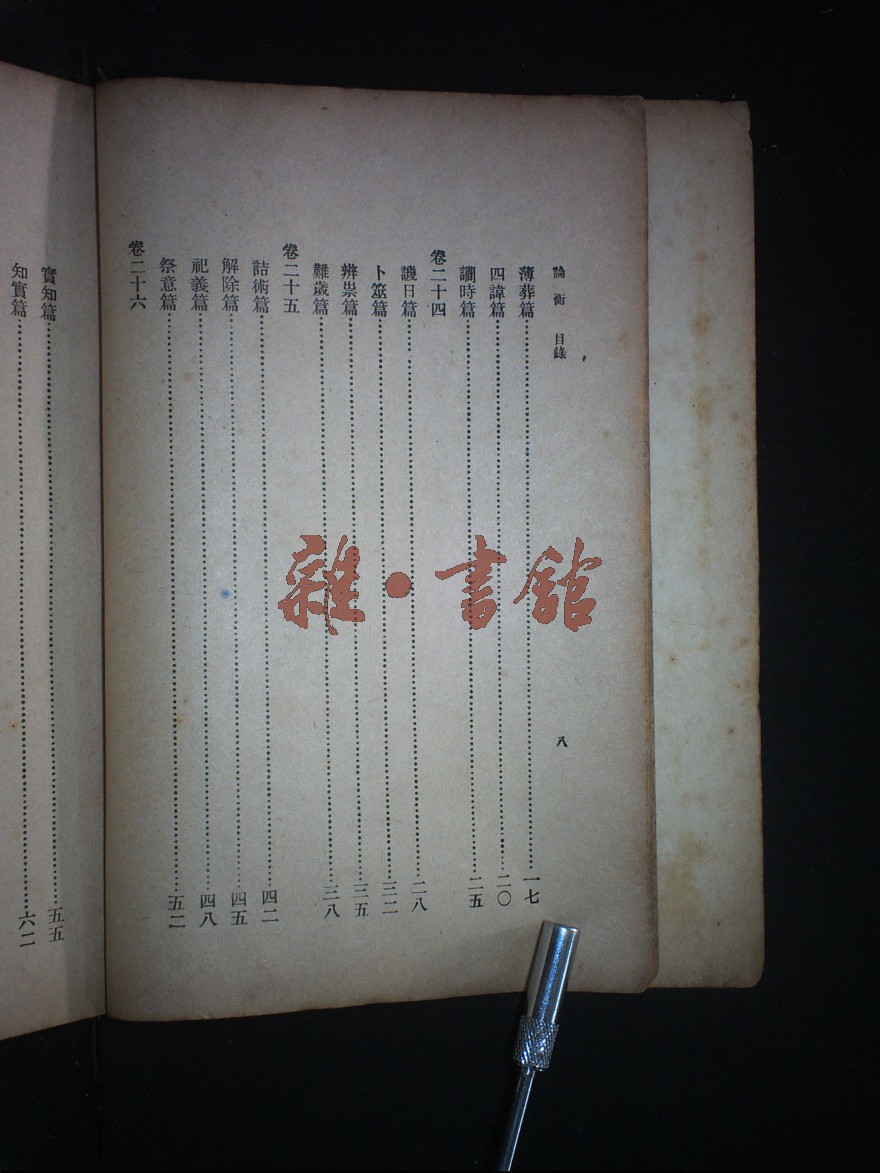 論衡 目錄
八
薄葬篇……一七
四諱篇……二〇
讕時篇……二五
卷二十四
譏日篇……二八
卜筮篇……三二
辨祟篇……三五
難歲篇……三八
卷二十五
詰術篇……四二
解除篇……四五
祀義篇……四八
祭意篇……五二
卷二十六
實知篇……五五
知實篇……六二
雜·書館